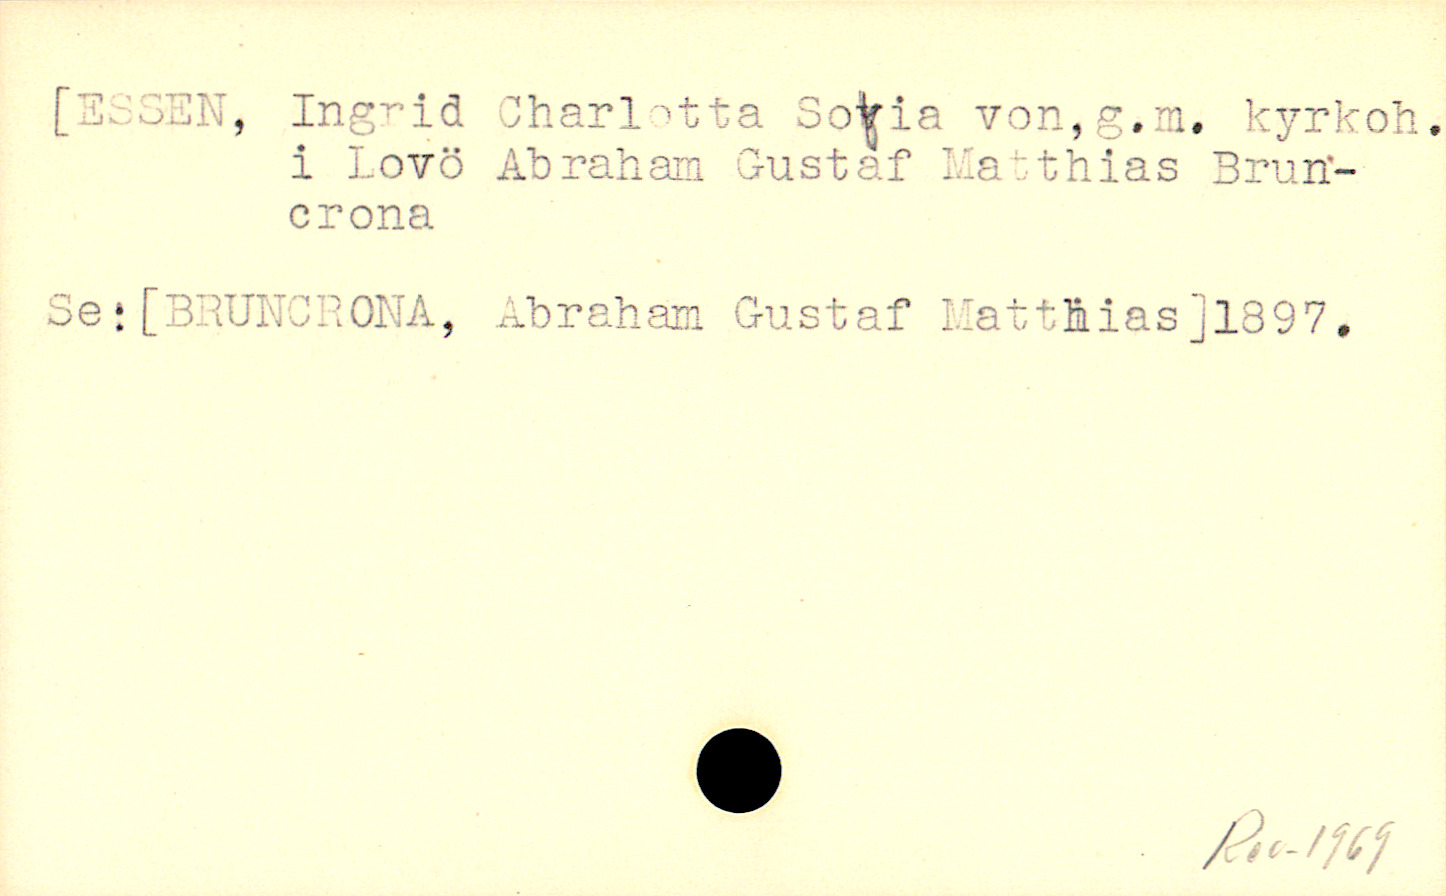 [ESSEN, Ingrid Charlotta Sofia von,g.m. kyrkoh.
i Lovö Abraham Gustaf Matthias Brun-
crona
Se:[BRUNCRONA, Abraham Gustaf Matthias]1897.
Rev-1969